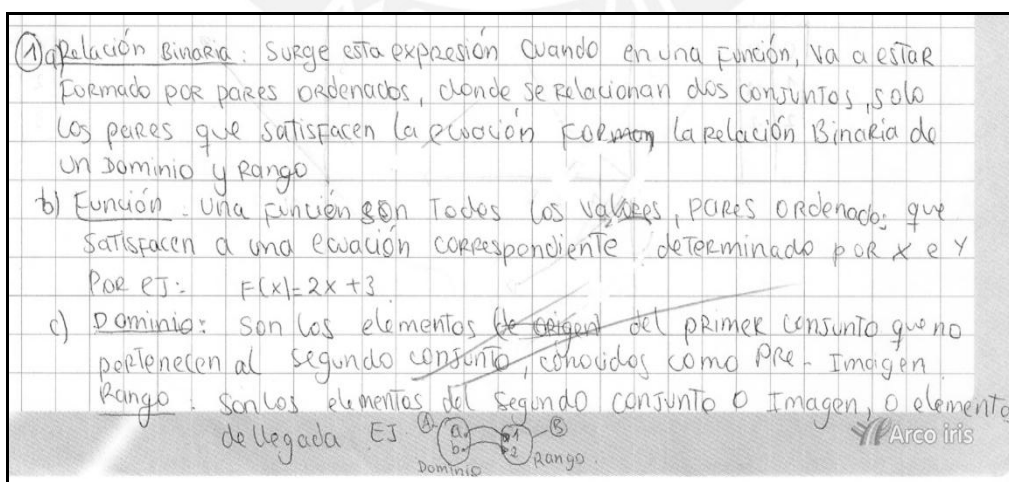 ① a) Relación Binaria: Surge esta expresión Cuando en una Función, va a estar
Formado por pares ordenados, donde se Relacionan dos conjuntos, solo
los pares que satisfacen la ecuación Forman la relación Binaria de
un Dominio y Rango
b) Función. Una función son Todos los valores, pares ordenado, que
Satisfacen a una ecuación correspondiente determinado por x e y
Por ej: F(x)=2x+3
c) Dominio: son los elementos (de origen) del primer conjunto que no
pertenecen al segundo conjunto, conocidos como Pre-Imagen
Rango: son los elementos del segundo conjunto o Imagen, o elemento
de llegada EJ. Ⓐ a. b. 1 2 Ⓑ
Dominio Rango.
Arco iris